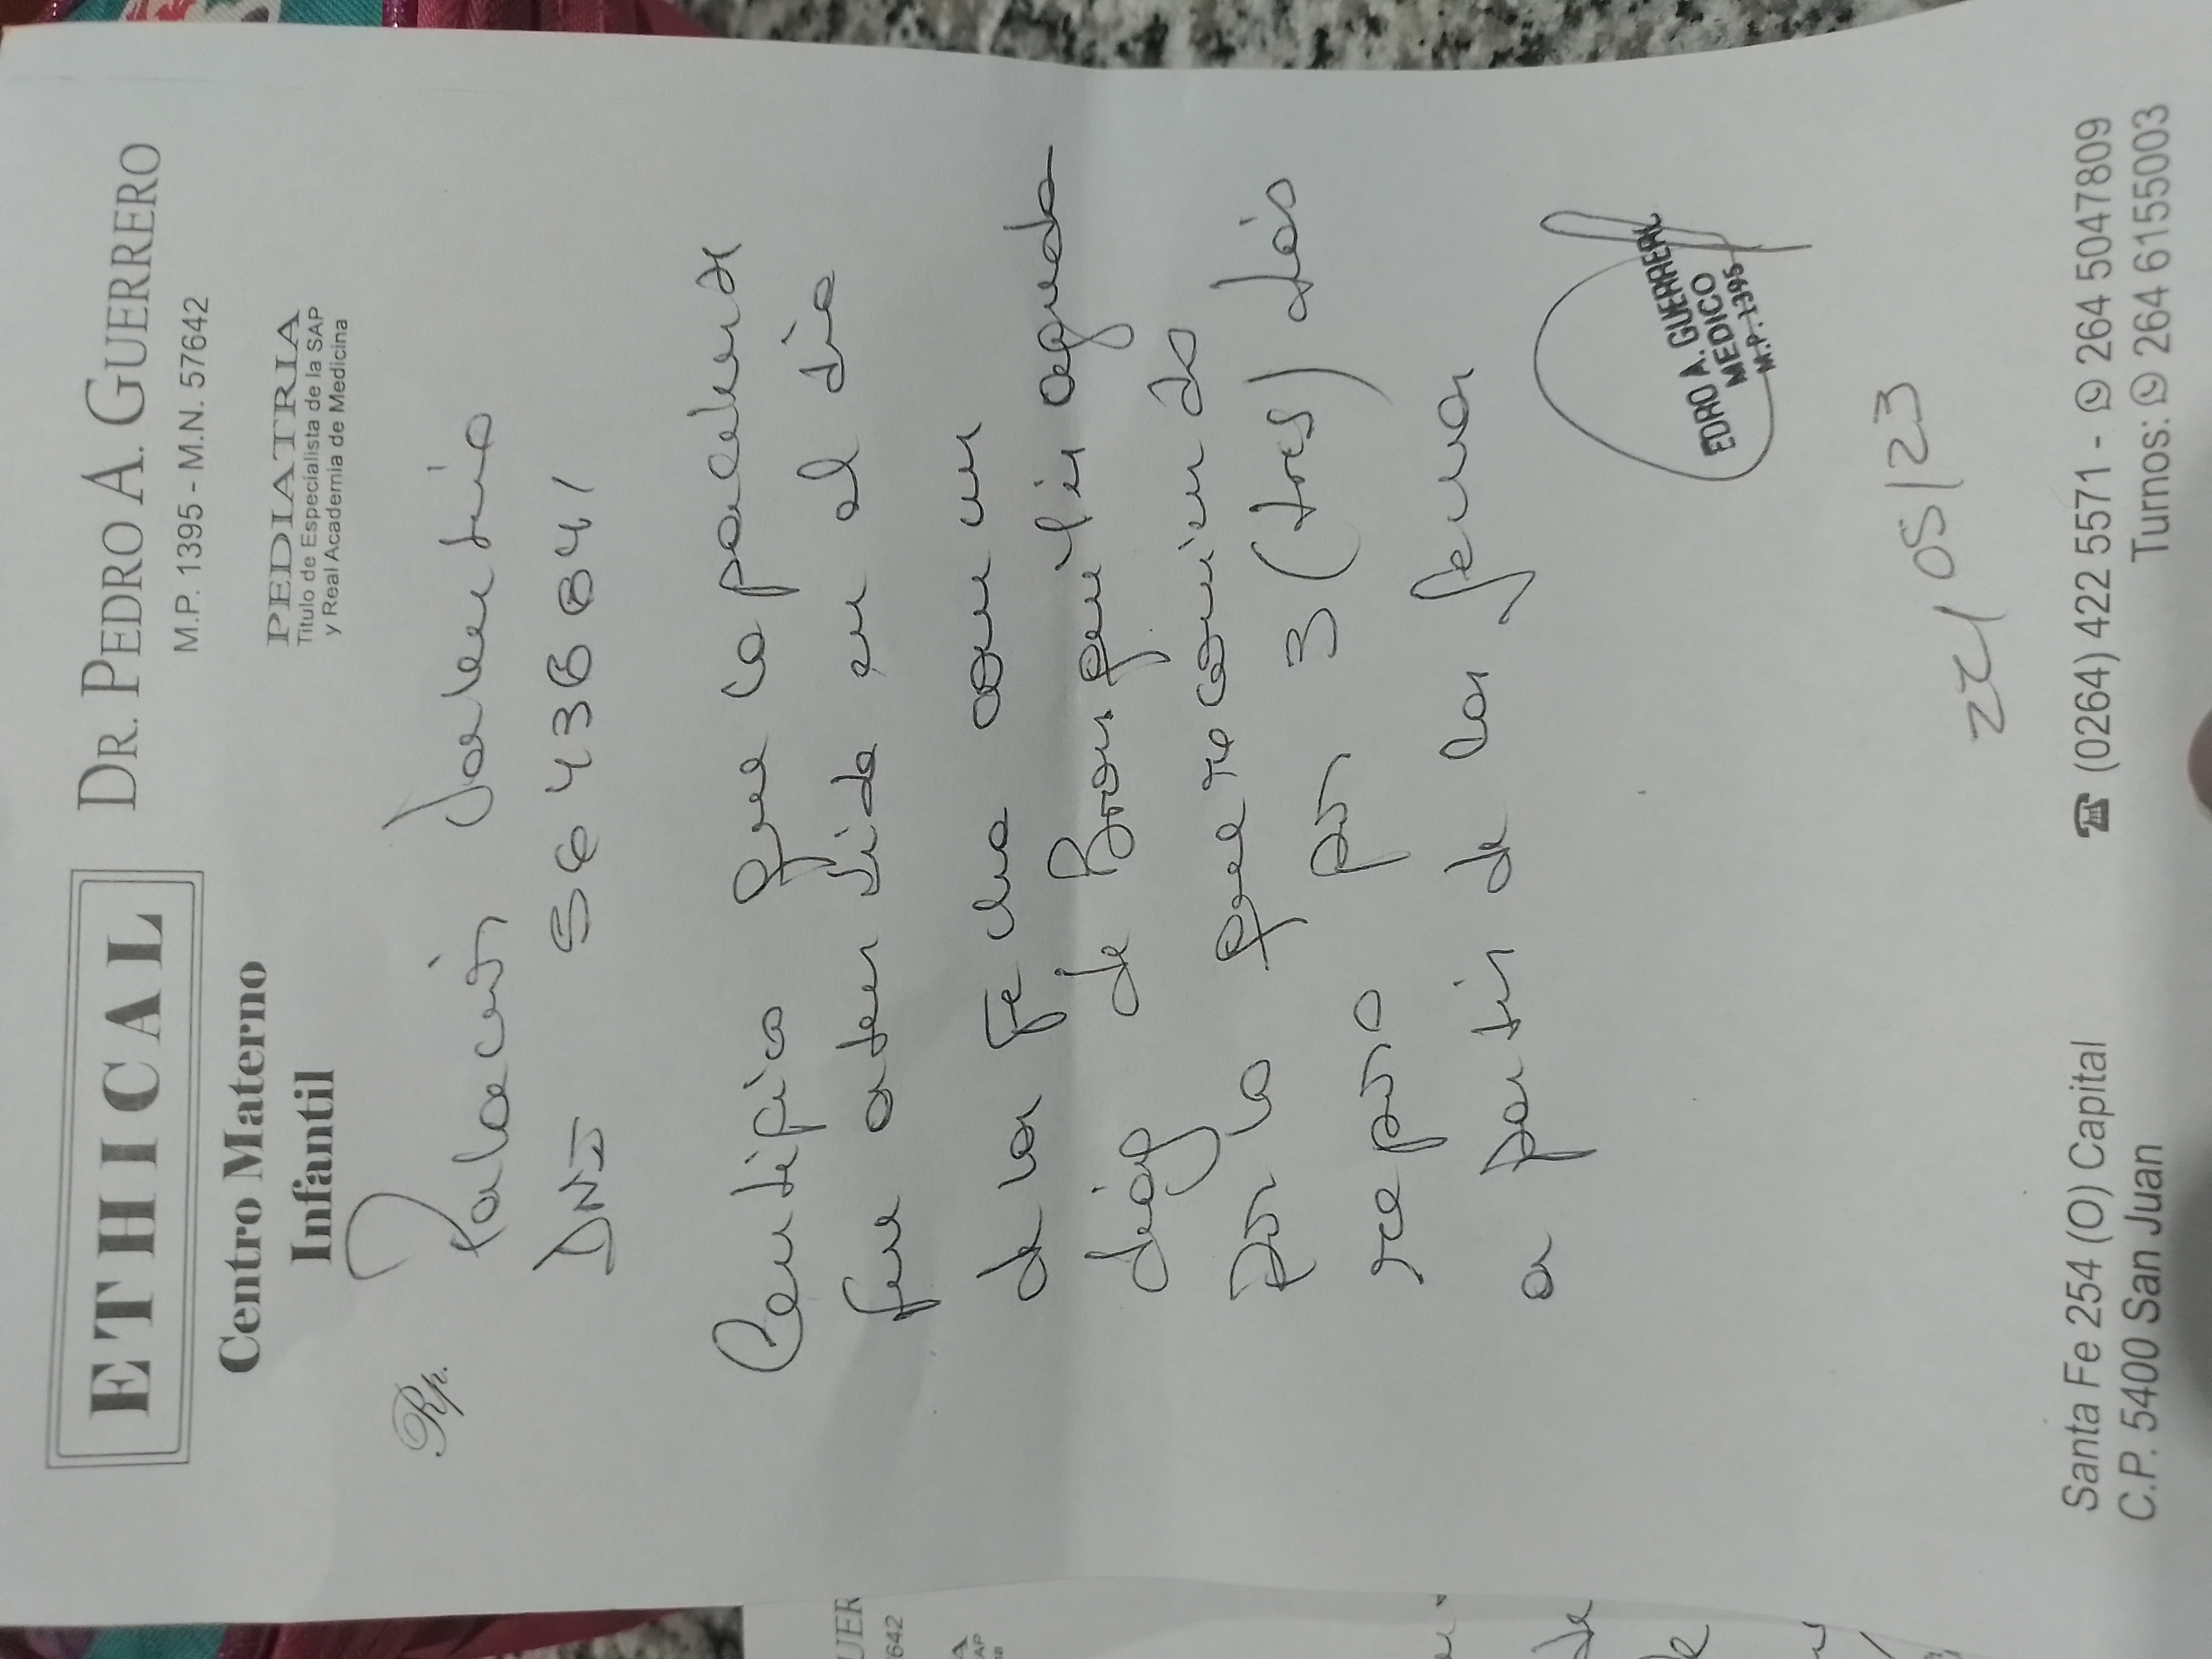 ETHICAL
Centro Materno
Infantil
DR. PEDRO A. GUERRERO
M.P. 1395 - M.N. 57642
PEDIATRIA
Titulo de Especialista de la SAP
y Real Academia de Medicina
Rp.
Palacios Valentino
DNI 56436841
Certifico que la paciente
fue atendida en el día
de la fecha con un
diag de Bronquilis aguda
por lo que recomiendo
reposo por 3 (tres) días
a partir de la fecha
EDRO A. GUERRERO
MEDICO
M.P. 1395
22/05/23
Santa Fe 254 (O) Capital
C.P. 5400 San Juan
(0264) 422 5571 - 264 5047809
Turnos: 264 6155003
UER
642
A
AP
na
de